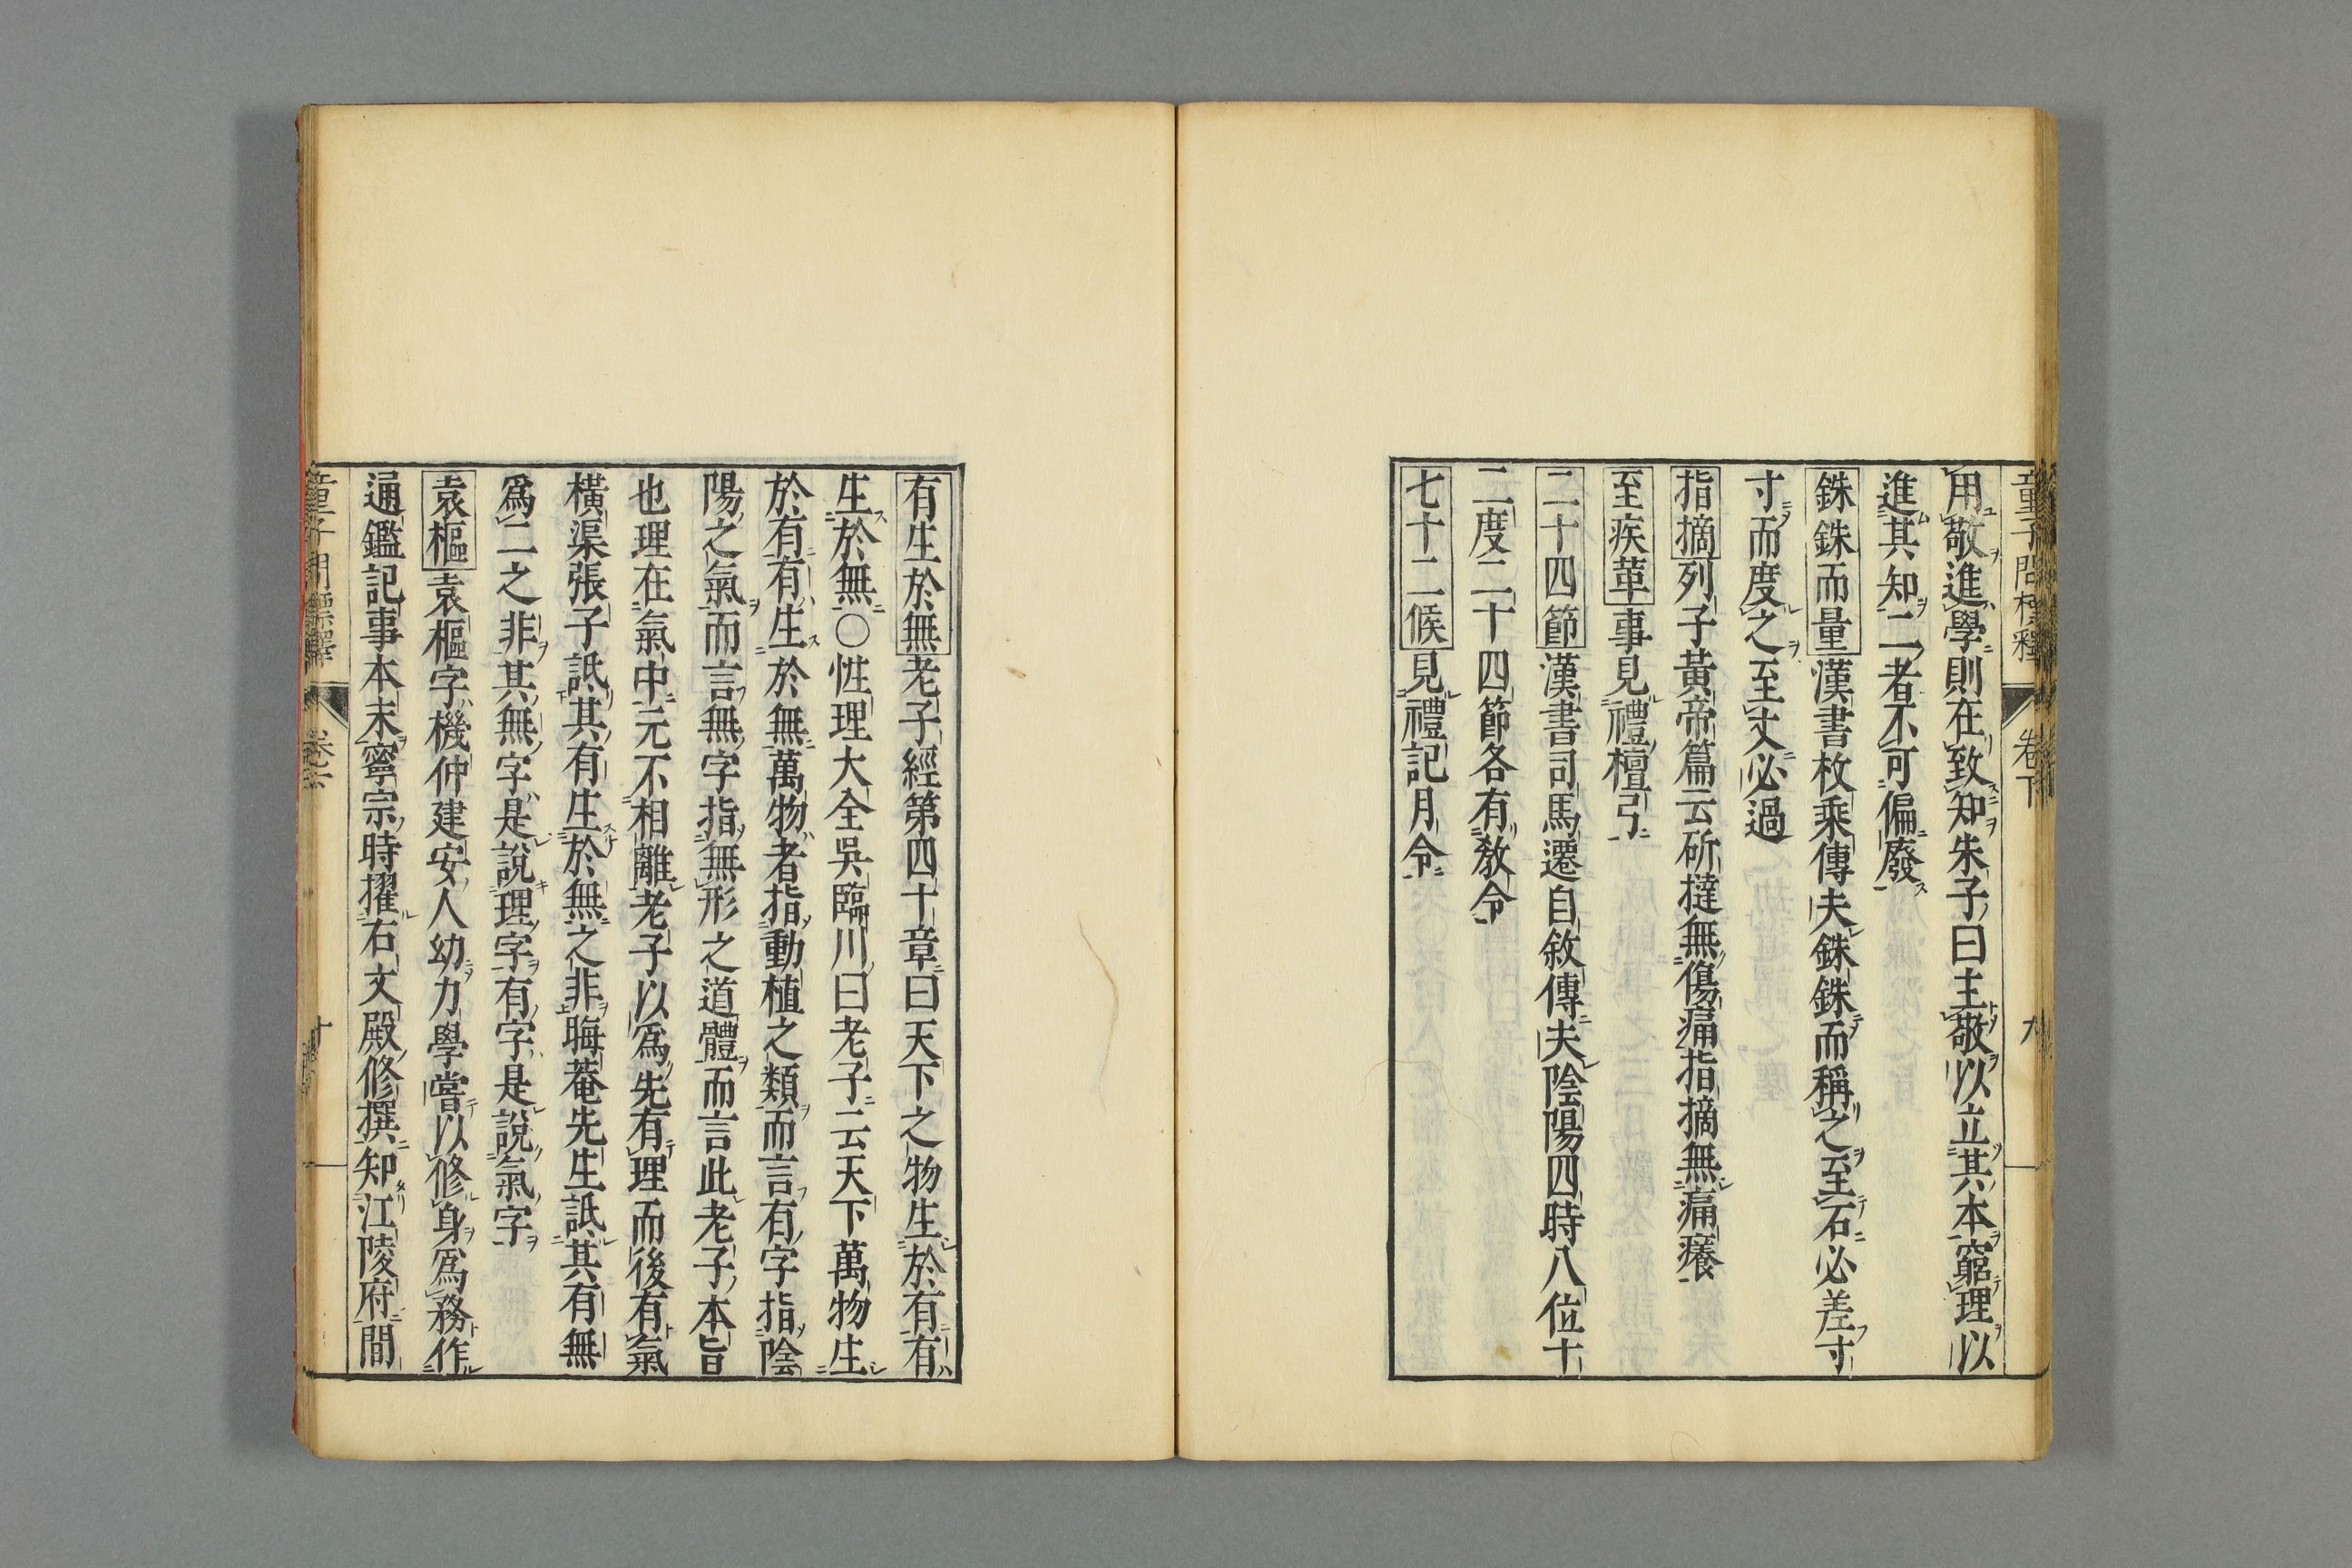 童子問標釋 卷下 九
用敬進學則在致知朱子曰主敬以立其本窮理以
進其知二者不可偏廢
銖銖而量漢書枚乘傳夫銖銖而稱之至石必差寸
寸而度之至丈必過
指摘列子黃帝篇云斫撻無傷痛指摘無痛癢
至疾革事見禮檀弓
二十四節漢書司馬遷自敘傳夫陰陽四時八位十
二度二十四節各有教令
七十二候見禮記月令
有生於無老子經第四十章曰天下之物生於有有
生於無〇性理大全吳臨川曰老子云天下萬物生
於有有生於無萬物者指動植之類而言有字指陰
陽之氣而言無字指無形之道體而言此老子本旨
也理在氣中元不相離老子以爲先有理而後有氣
橫渠張子詆其有生於無之非晦菴先生詆其有無
爲二之非其無字是說理字有字是說氣字
袁樞袁樞字機仲建安人幼力學嘗以修身爲務作
通鑑記事本末寧宗時擢右文殿修撰知江陵府間
童子問標釋 卷下 十